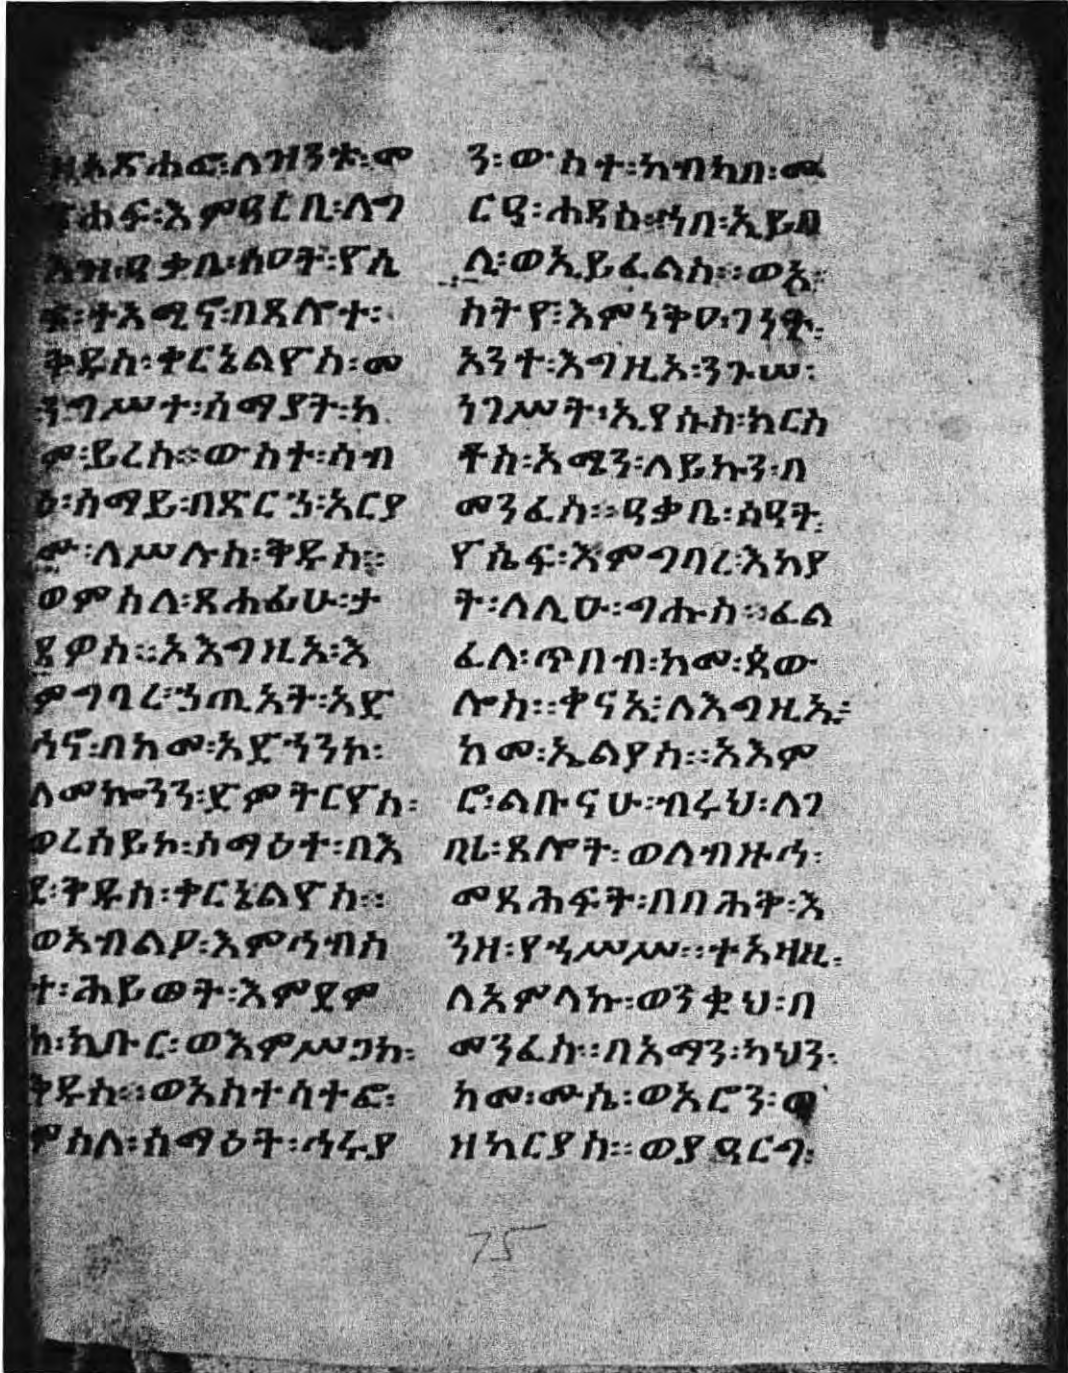 ዘአጽሐፎ፡ለዝንቱ፡መ
ጽሐፍ፡እምዳርቢ፡ለግ
ዓቃቤ፡ሰዓት፡ዮሴ
ፍ፡ተአሚኖ፡በጸሎተ፡
ቅዱስ፡ቀርኔልዮስ፡መ
ንግሥተ፡ሰማያት፡ከ
መ፡ይረስ።ውስተ፡ሳብ
ዕ፡ሰማይ፡በጽርኅ፡አርያ
ሙ፡ለሥሉስ፡ቅዱስ።
ወምስለ፡ጸሐፊሁ፡ታ
ዴዎስ።አእግዚኦ፡እ
ምግባረ፡ኃጢአት፡አድ
ኅኖ፡በከመ፡አድኀንኮ፡
ለመኰንን፡ድምትርዮስ፡
ወረሰይኮ፡ሰማዕተ፡በእ
ደ፡ቅዱስ፡ቀርኔልዮስ።
ወአብልዖ፡እምኅብስ
ተ፡ሕይወት፡እምደም
ከ፡ክቡር፡ወእምሥጋከ፡
ቅዱስ።ወአስተሳተፎ፡
ምስለ፡ሰማዕት፡ኅሩያ
ን፡ውስተ፡ካብካበ፡መ
ርዓ፡ሐዳስ።ኀበ፡ኢይበ
ሊ፡ወኢይፈልስ።ወአ፡
ስትዮ፡እምነቅዐ፡ገነት፡
አንተ፡እግዚአ፡ንጉሠ፡
ነገሥት፡ኢየሱስ፡ክርስ
ቶስ፡አሜን፡ለይኩን፡በ
መንፈስ።ዓቃቤ፡ሰዓት፡
ዮሴፍ፡እምግባረ፡እከያ
ት፡ለሊሁ፡ግሑስ።ፈል
ፈለ፡ጥበብ፡ከመ፡ጳው
ሎስ።ቀናኢ፡ለእግዚአ፡
ከመ፡ኤልያስ።አእም
ሮ፡ልቡናሁ፡ብሩህ፡ለገ
ባሬ፡ጸሎት፡ወለብዙኅ፡
መጻሕፍት፡በበሕቅ፡እ
ንዘ፡የኀሥሥ።ተአዛዚ፡
ለአምላኩ፡ወንቁህ፡በ
መንፈስ።በአማን፡ካህን፡
ከመ፡ሙሴ፡ወአሮን፡ወ
ዘካርያስ።ወያዓርግ፡
75